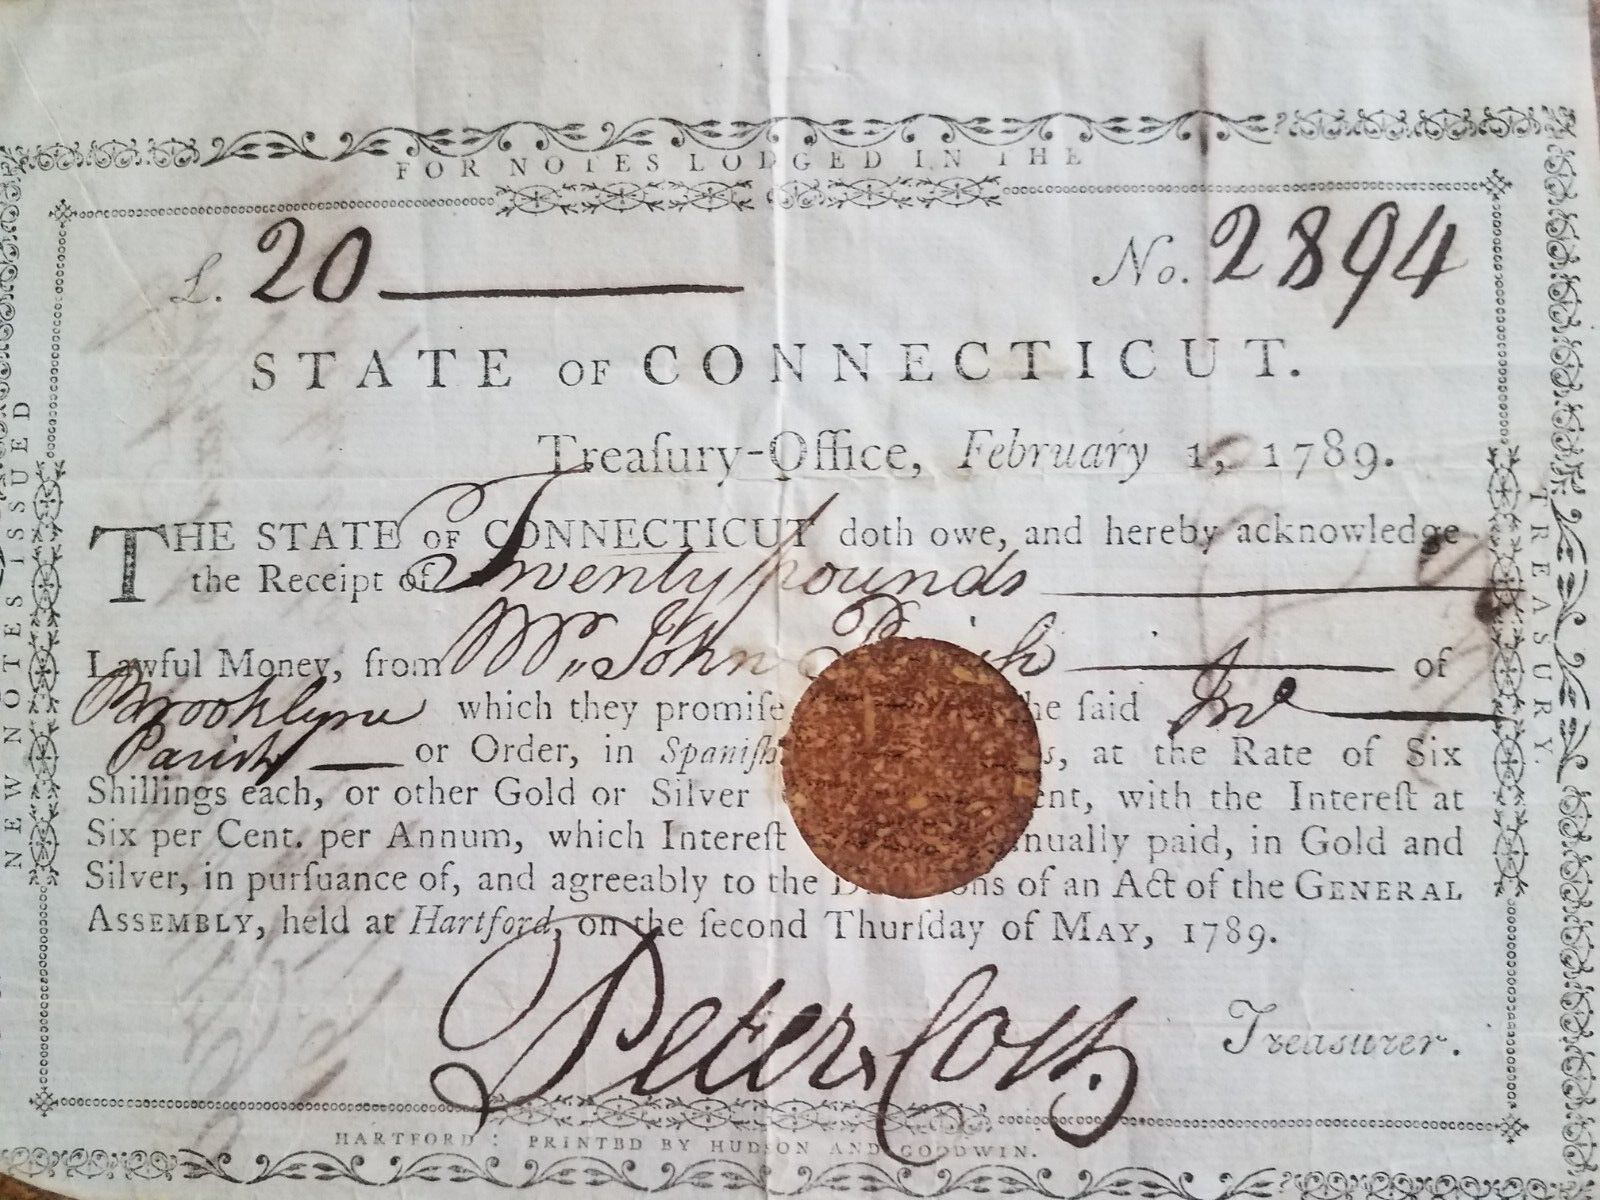 FOR NOTES LODGED IN THE
£. 20
No. 2894
STATE OF CONNECTICUT.
Treaſury-Office, February 1, 1789.
THE STATE OF CONNECTICUT doth owe, and hereby acknowledge
the Receipt of Twenty pounds
Lawful Money, from Mr. John of
Brooklyne which they promiſe he ſaid Jno
Parish or Order, in Spaniſh at the Rate of Six
Shillings each, or other Gold or Silver with the Intereſt at
Six per Cent. per Annum, which Intereſt paid, in Gold and
Silver, in purſuance of, and agreeably to the of an Act of the GENERAL
ASSEMBLY, held at Hartford, on the ſecond Thurſday of MAY, 1789.
Peter Colt. Treasurer.
HARTFORD: PRINTED BY HUDSON AND GOODWIN.
NEW NOTES ISSUED
TREASURY.